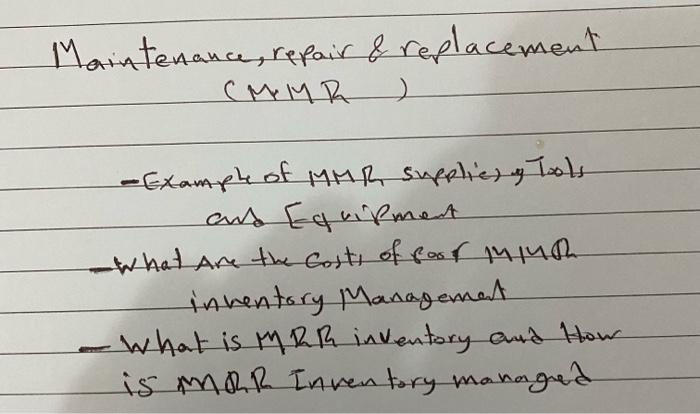 Maintenance, repair & replacement
(MMR)
- Example of MMR supplies, Tools
and Equipment
- What Are the Costs of Poor MMR
inventory Management
- What is MRR inventory and How
is MRR Inventory managed